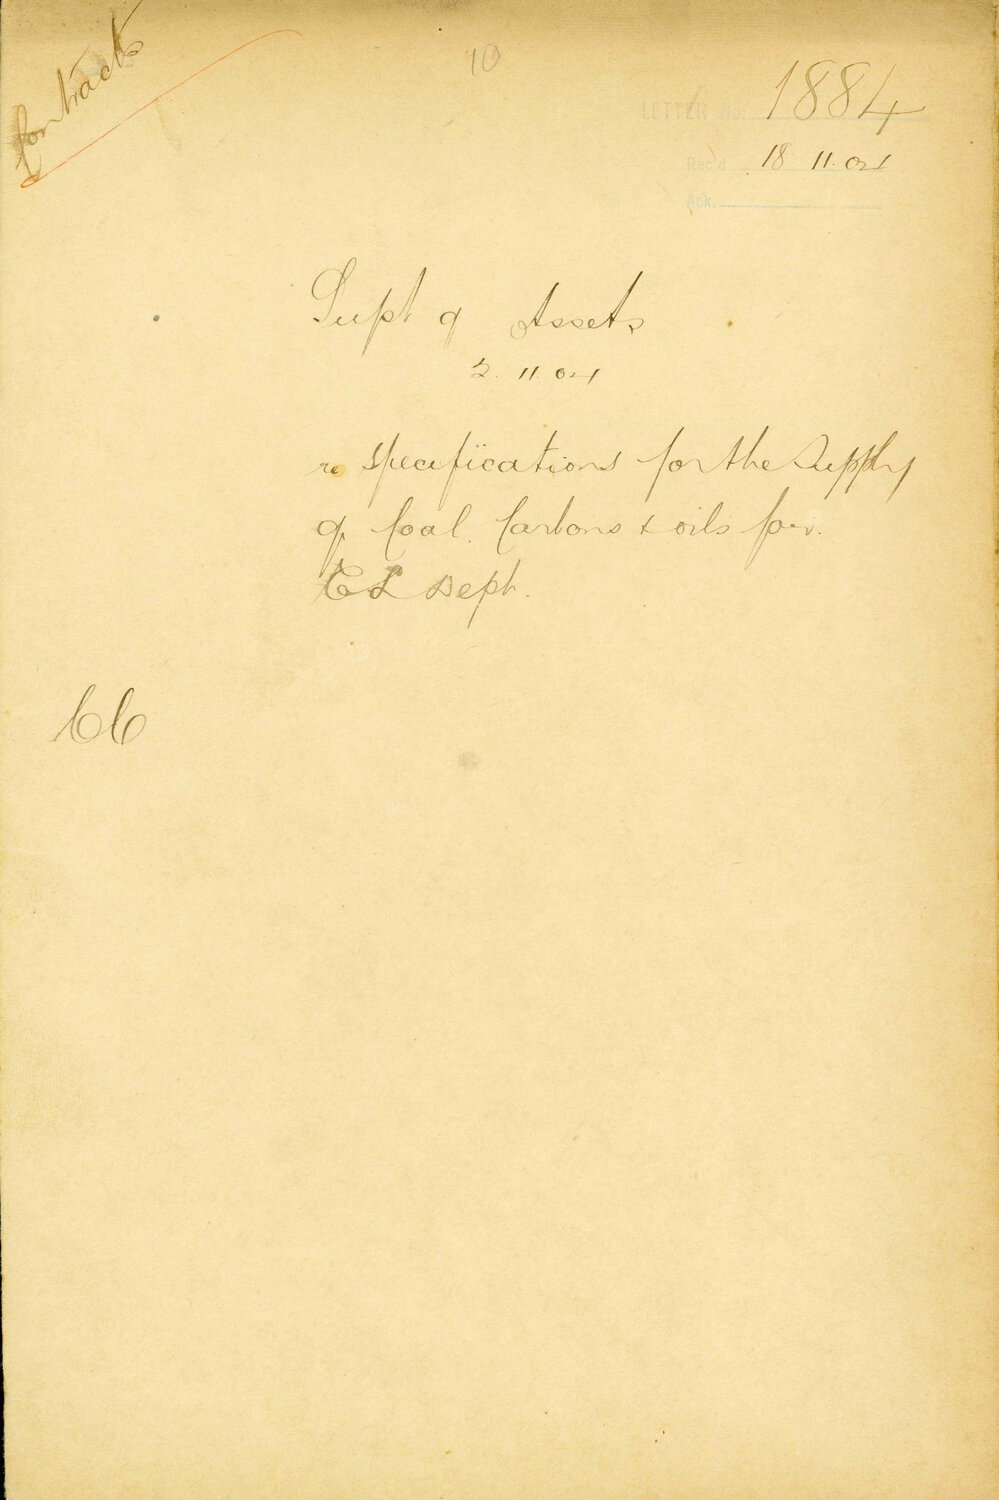 Contracts
10
LETTER No. 1884
Rec'd 18 11.04
Ack.
Supt of Assets
2. 11. 04
re specifications for the supply
of Coal. Carbons & oils for.
EL Dept.
66